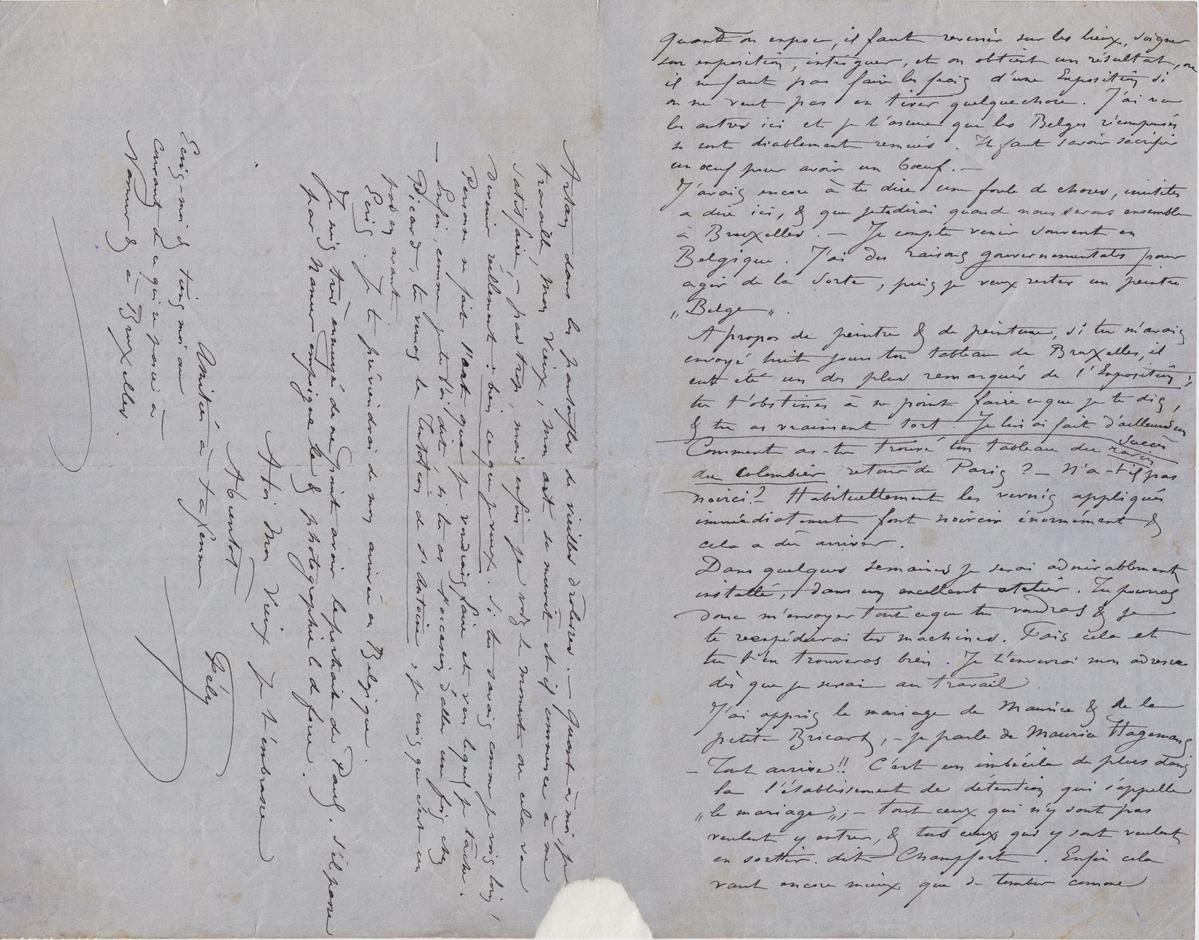 Quand on expose, il faut revenir sur les lieux, soigner
son exposition, intriguer, et on obtient un résultat, ou
il ne faut pas faire les frais d'une Exposition si
on ne veut pas en tirer quelque chose. J'ai vu
les autres ici et je t'assure que les Belges récompensés
se sont diablement remués. Il faut savoir sacrifier
un oeuf pour avoir un boeuf. —
J'avais encore à te dire une foule de choses, inutiles
a dire ici, & que je te dirai quand nous serons ensemble
à Bruxelles. — Je compte venir souvent en
Belgique. J'ai des raisons gouvernementales pour
agir de la sorte, puis je veux rester un peintre
„Belge".
A propos de peintre & de peinture, si tu m'avais
envoyé huit jours ton tableau de Bruxelles, il
eut été un des plus remarqués de l'Exposition;
tu t'obstines à ne point faire ce que je te dis,
& tu as vraiment tort. Je lui ai fait d'ailleurs un
succès
Comment as-tu trouvé ton tableau du
du Colombier retour de Paris? — N'a-t-il pas
noirci? — Habituellement les vernis appliqués
immédiatement font noircir énormément &
cela a dû arriver.
Dans quelques semaines je serai admirablement
installé, dans un excellent atelier. Tu pourras
donc m'envoyer tout ce que tu voudras & je
te réexpédierai tes machines. Fais cela et
tu t'en trouveras bien. Je t'enverrai mon adresse
dès que je serai au travail
J'ai appris le mariage de Maurice & de la
petite Bricart, — je parle de Maurice Hagemans
— Tout arrive!! C'est un imbécile de plus dans
la l'établissement de détention qui s'appelle
„le mariage"; — tout ceux qui n'y sont pas
veulent y entrer, & tous ceux qui y sont veulent
en sortir dit Champfort. Enfin cela
vaut encore mieux que de tomber comme
Artan dans les pantoufles de vieilles drôlesses. — Quant à moi je
travaille, mon vieux, mon art se nourrit et il commence à me
satisfaire, — pas trop, mais enfin je vois le moment où cela va
devenir réellement: bien ce que je veux. Si tu savais comme je vois loin!
Personne ne fait l'art que je voudrais faire et vers lequel je tâche.
— Enfin, comme je te l'ai dit si tu as l'occasion d'aller un jour chez
Picard, tu verras la Tentation de St Antoine, je crois que c'est en
pas en avant.
Ecris. Je te préviendrai de mon arrivée en Belgique.
Je suis très ennuyé de ne point avoir le portrait de Paul. S'il passe
par Namur empoigne le & photographie le de force.
A toi mon vieux je t'embrasse
A bientôt
Fély
Amitiés à ta femme
Ecris-moi & tiens moi au
courant de ce qui se passe à
Namur & à Bruxelles.